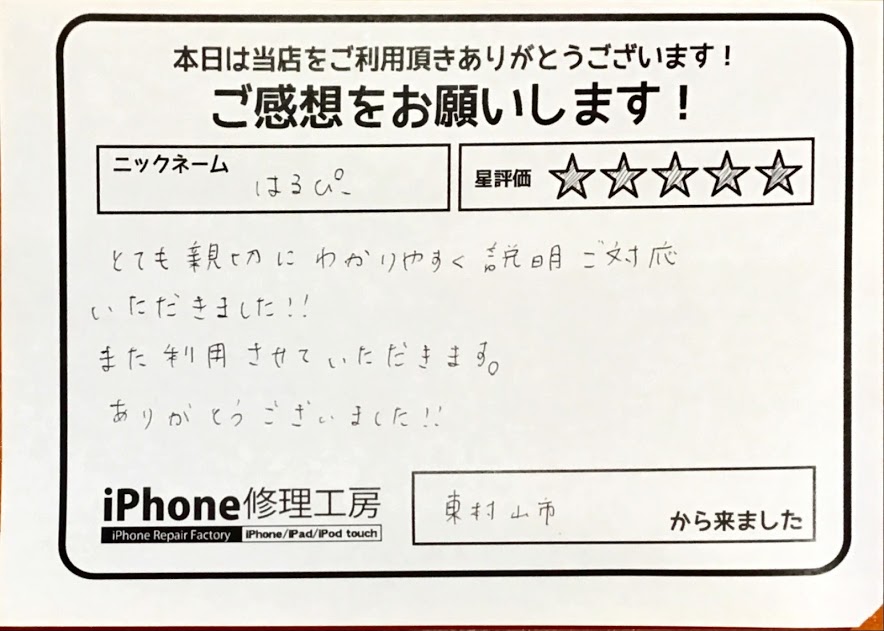 本日は当店をご利用頂きありがとうございます！
ご感想をお願いします！
ニックネーム はるぴー
星評価 ★★★★★
とても親切にわかりやすく説明ご対応
いただきました!!
また利用させていただきます。
ありがとうございました!!
iPhone修理工房
iPhone Repair Factory iPhone/iPad/iPod touch
東村山市 から来ました